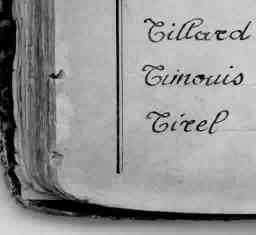 Tillard
Timouis
Tirel